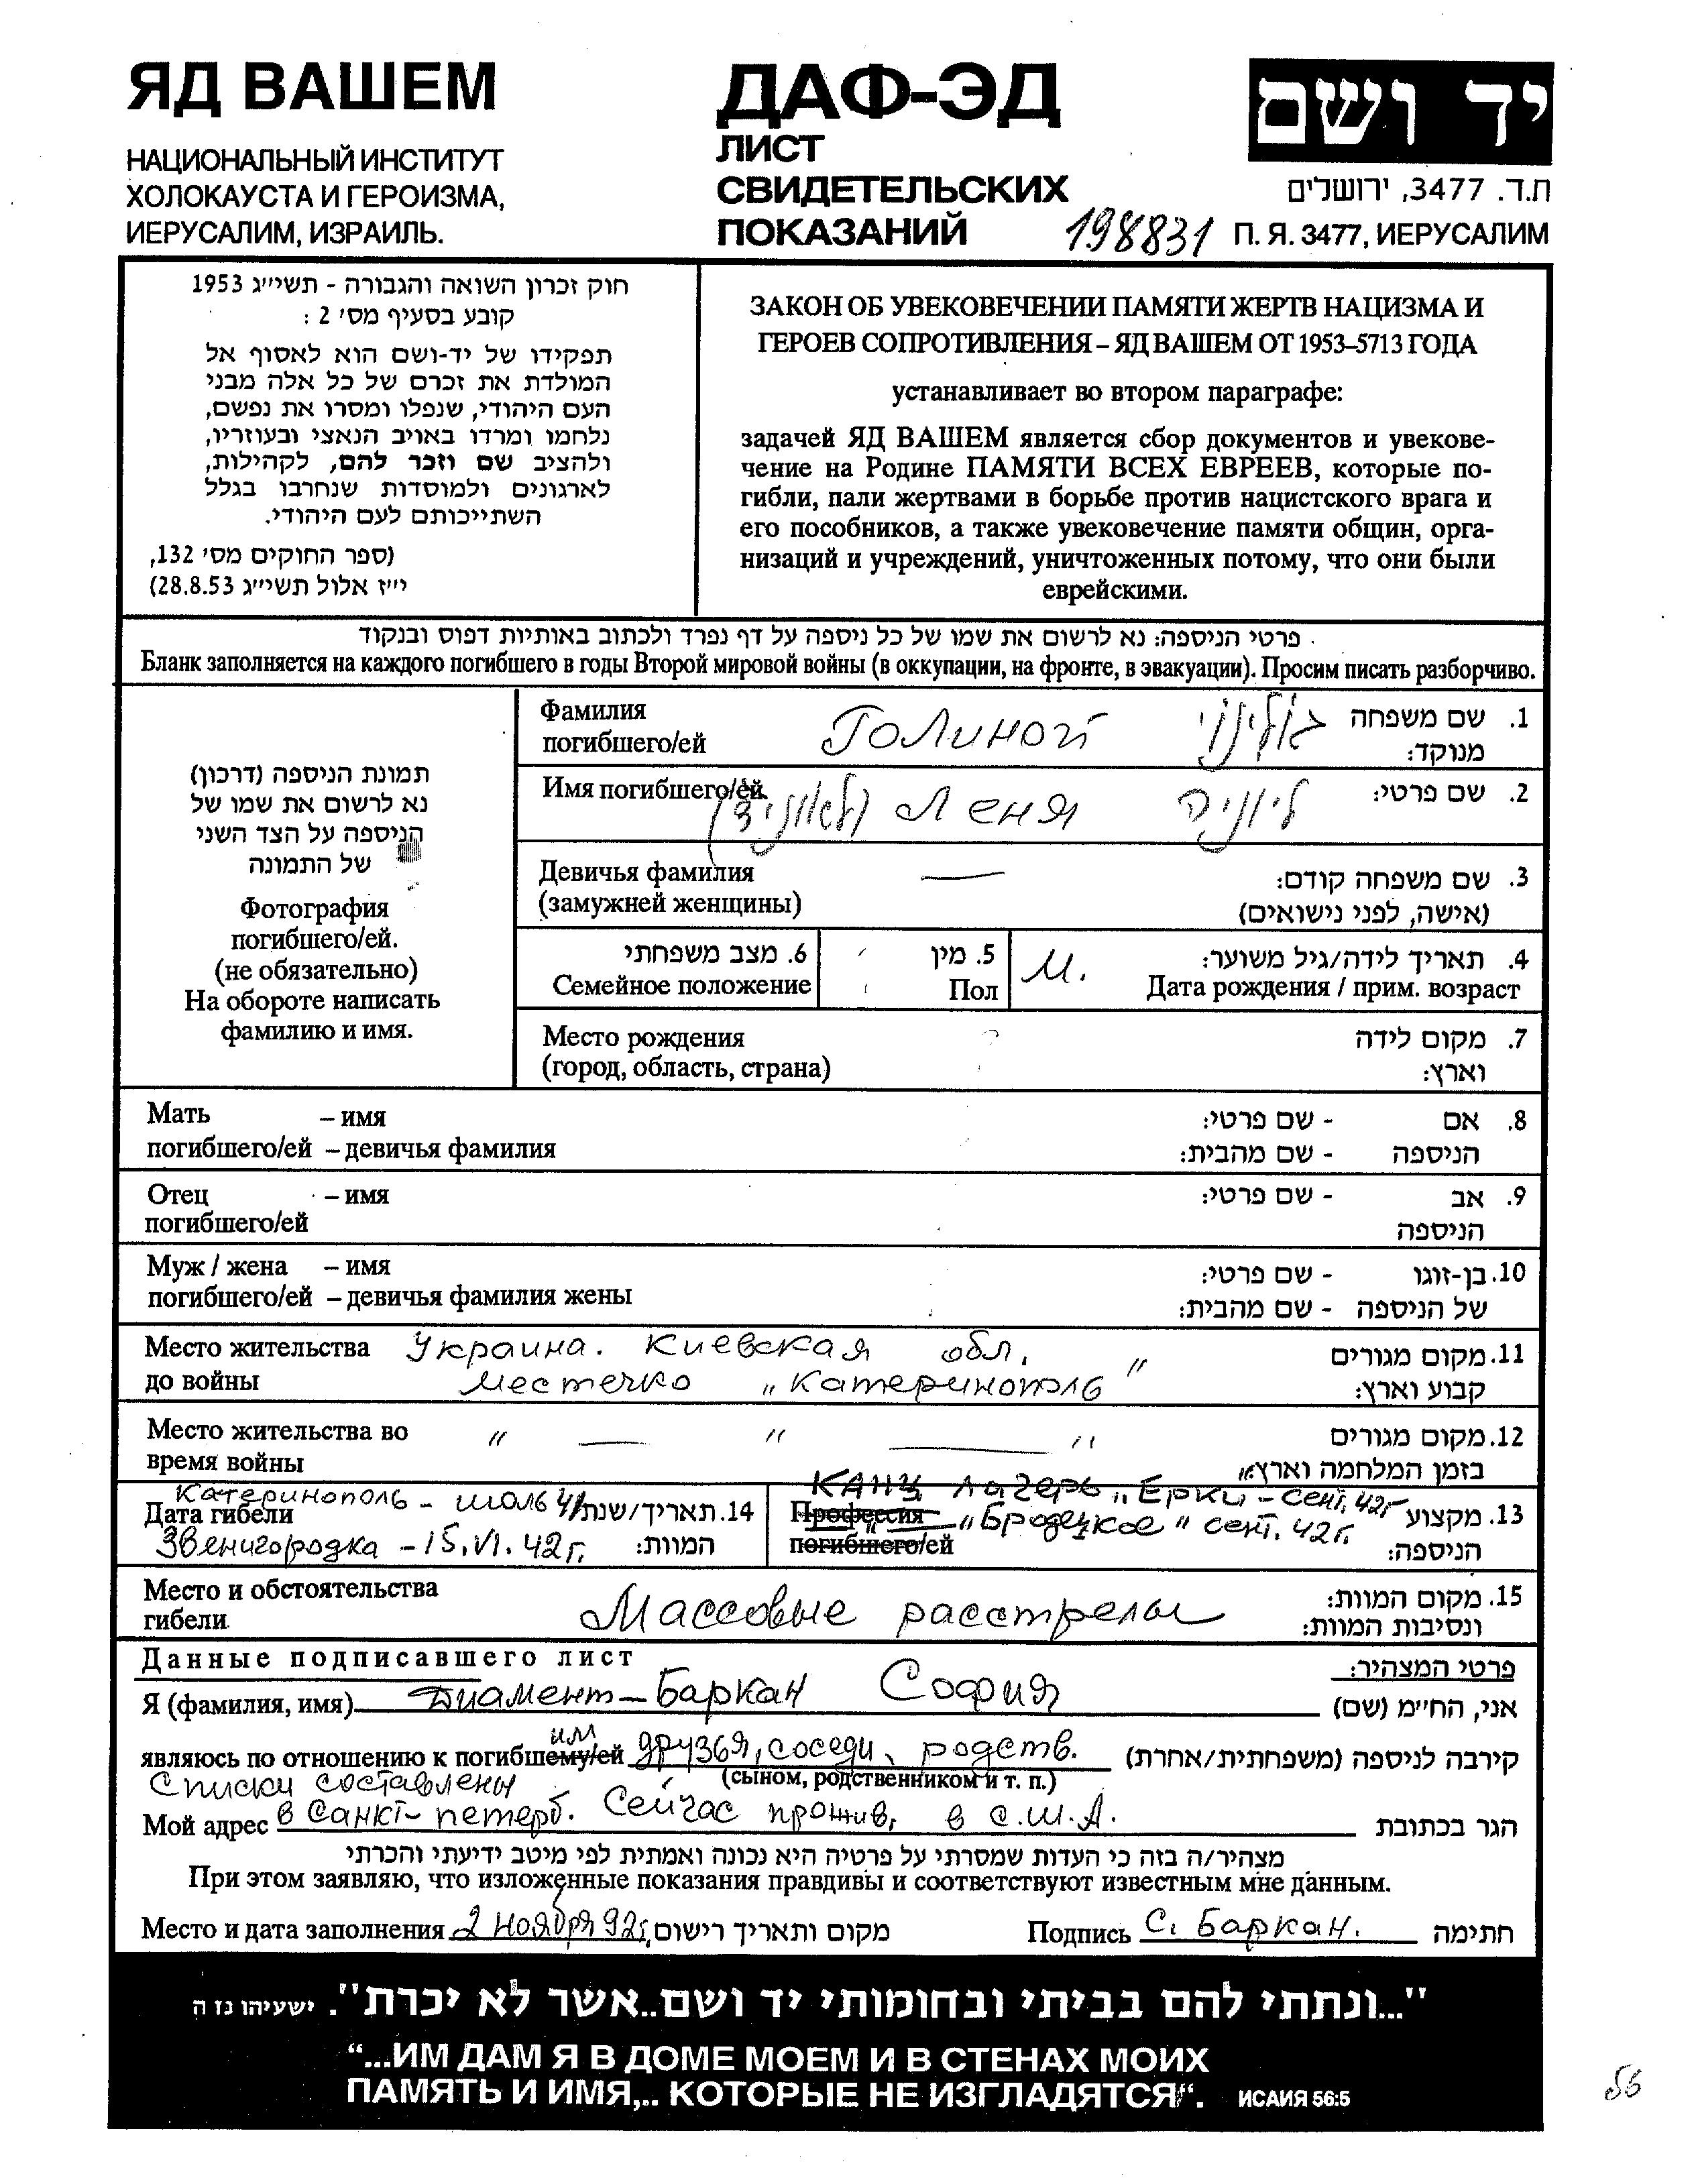 ЯД ВАШЕМ
НАЦИОНАЛЬНЫЙ ИНСТИТУТ
ХОЛОКАУСТА И ГЕРОИЗМА,
ИЕРУСАЛИМ, ИЗРАИЛЬ.
ДАФ-ЭД
ЛИСТ
СВИДЕТЕЛЬСКИХ
ПОКАЗАНИЙ
198831
יד ושם
ת.ד. 3477, ירושלים
П. Я. 3477, ИЕРУСАЛИМ
חוק זכרון השואה והגבורה - תשי״ג 1953
קובע בסעיף מס׳ 2 :
תפקידו של יד-ושם הוא לאסוף אל
המולדת את זכרם של כל אלה מבני
העם היהודי, שנפלו ומסרו את נפשם,
נלחמו ומרדו באויב הנאצי ובעוזריו,
ולהציב שם וזכר להם, לקהילות,
לארגונים ולמוסדות שנחרבו בגלל
השתייכותם לעם היהודי.
(ספר החוקים מס׳ 132,
י״ז אלול תשי״ג 28.8.53)
ЗАКОН ОБ УВЕКОВЕЧЕНИИ ПАМЯТИ ЖЕРТВ НАЦИЗМА И
ГЕРОЕВ СОПРОТИВЛЕНИЯ – ЯД ВАШЕМ ОТ 1953–5713 ГОДА
устанавливает во втором параграфе:
задачей ЯД ВАШЕМ является сбор документов и увекове-
чение на Родине ПАМЯТИ ВСЕХ ЕВРЕЕВ, которые по-
гибли, пали жертвами в борьбе против нацистского врага и
его пособников, а также увековечение памяти общин, орга-
низаций и учреждений, уничтоженных потому, что они были
еврейскими.
פרטי הניספה: נא לרשום את שמו של כל ניספה על דף נפרד ולכתוב באותיות דפוס ובנקוד
Бланк заполняется на каждого погибшего в годы Второй мировой войны (в оккупации, на фронте, в эвакуации). Просим писать разборчиво.
תמונת הניספה (דרכון)
נא לרשום את שמו של
הניספה על הצד השני
של התמונה
Фотография
погибшего/ей.
(не обязательно)
На обороте написать
фамилию и имя.
Фамилия Голиной גולינוי 1. שם משפחה
погибшего/ей מנוקד:
Имя погибшего/ей (לאוניד) Леня ליוניה 2. שם פרטי:
Девичья фамилия — 3. שם משפחה קודם:
(замужней женщины) (אישה, לפני נישואים)
6. מצב משפחתי 5. מין 4. תאריך לידה/גיל משוער:
Семейное положение Пол М. Дата рождения / прим. возраст
Место рождения ? 7. מקום לידה
(город, область, страна) וארץ:
Мать – имя 8. אם - שם פרטי:
погибшего/ей – девичья фамилия הניספה - שם מהבית:
Отец – имя 9. אב - שם פרטי:
погибшего/ей הניספה
Муж / жена – имя 10. בן-זוגו - שם פרטי:
погибшего/ей – девичья фамилия жены של הניספה - שם מהבית:
Место жительства Украина. Киевская обл. 11. מקום מגורים
до войны местечко „Катеринополь" קבוע וארץ:
Место жительства во " — " — " 12. מקום מגורים
время войны בזמן המלחמה וארץ:
Катеринополь – июль 41 КАНЦ лагерь „Ерки – сент. 42г
Дата гибели 14. תאריך/שנת Профессия " — „Бродецкое" сент. 42г. 13. מקצוע
Звенигородка – 15.VI.42г. המוות: погибшего/ей הניספה:
Место и обстоятельства 15. מקום המוות:
гибели Массовые расстрелы ונסיבות המוות:
Данные подписавшего лист פרטי המצהיר:
Я (фамилия, имя) Диамент–Баркан София אני, החי״מ (שם)
являюсь по отношению к погибшему/ей им друзья, соседи, родств. קירבה לניספה (משפחתית/אחרת)
Списки составлены (сыном, родственником и т. п.)
Мой адрес в Санкт–петерб. Сейчас прожив. в С.Ш.А. הגר בכתובת
מצהיר/ה בזה כי העדות שמסרתי על פרטיה היא נכונה ואמתית לפי מיטב ידיעתי והכרתי
При этом заявляю, что изложенные показания правдивы и соответствуют известным мне данным.
Место и дата заполнения 2 ноября 92г. מקום ותאריך רישום Подпись С. Баркан. חתימה
"...ונתתי להם בביתי ובחומותי יד ושם..אשר לא יכרת". ישעיהו נז ה
“...ИМ ДАМ Я В ДОМЕ МОЕМ И В СТЕНАХ МОИХ
ПАМЯТЬ И ИМЯ,.. КОТОРЫЕ НЕ ИЗГЛАДЯТСЯ“. ИСАИЯ 56:5